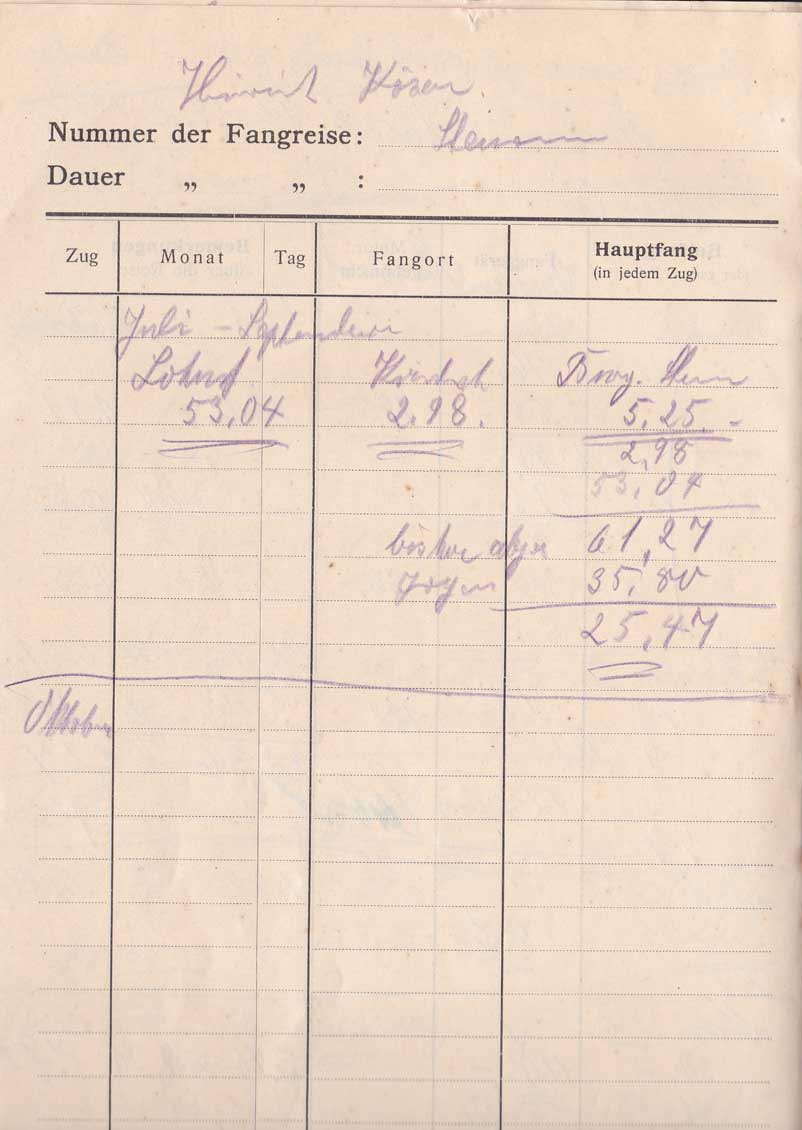 Hinrich Köser.
Nummer der Fangreise: Steuern
Dauer „ „ :
Zug Monat Tag Fangort Hauptfang
(in jedem Zug)
Juli - September
Lohnst. Kirchst. Bürg. Steuer
53,04 2,98. 5,25.-
2,98
53,04
61,27
35,80
25,47
Oktober